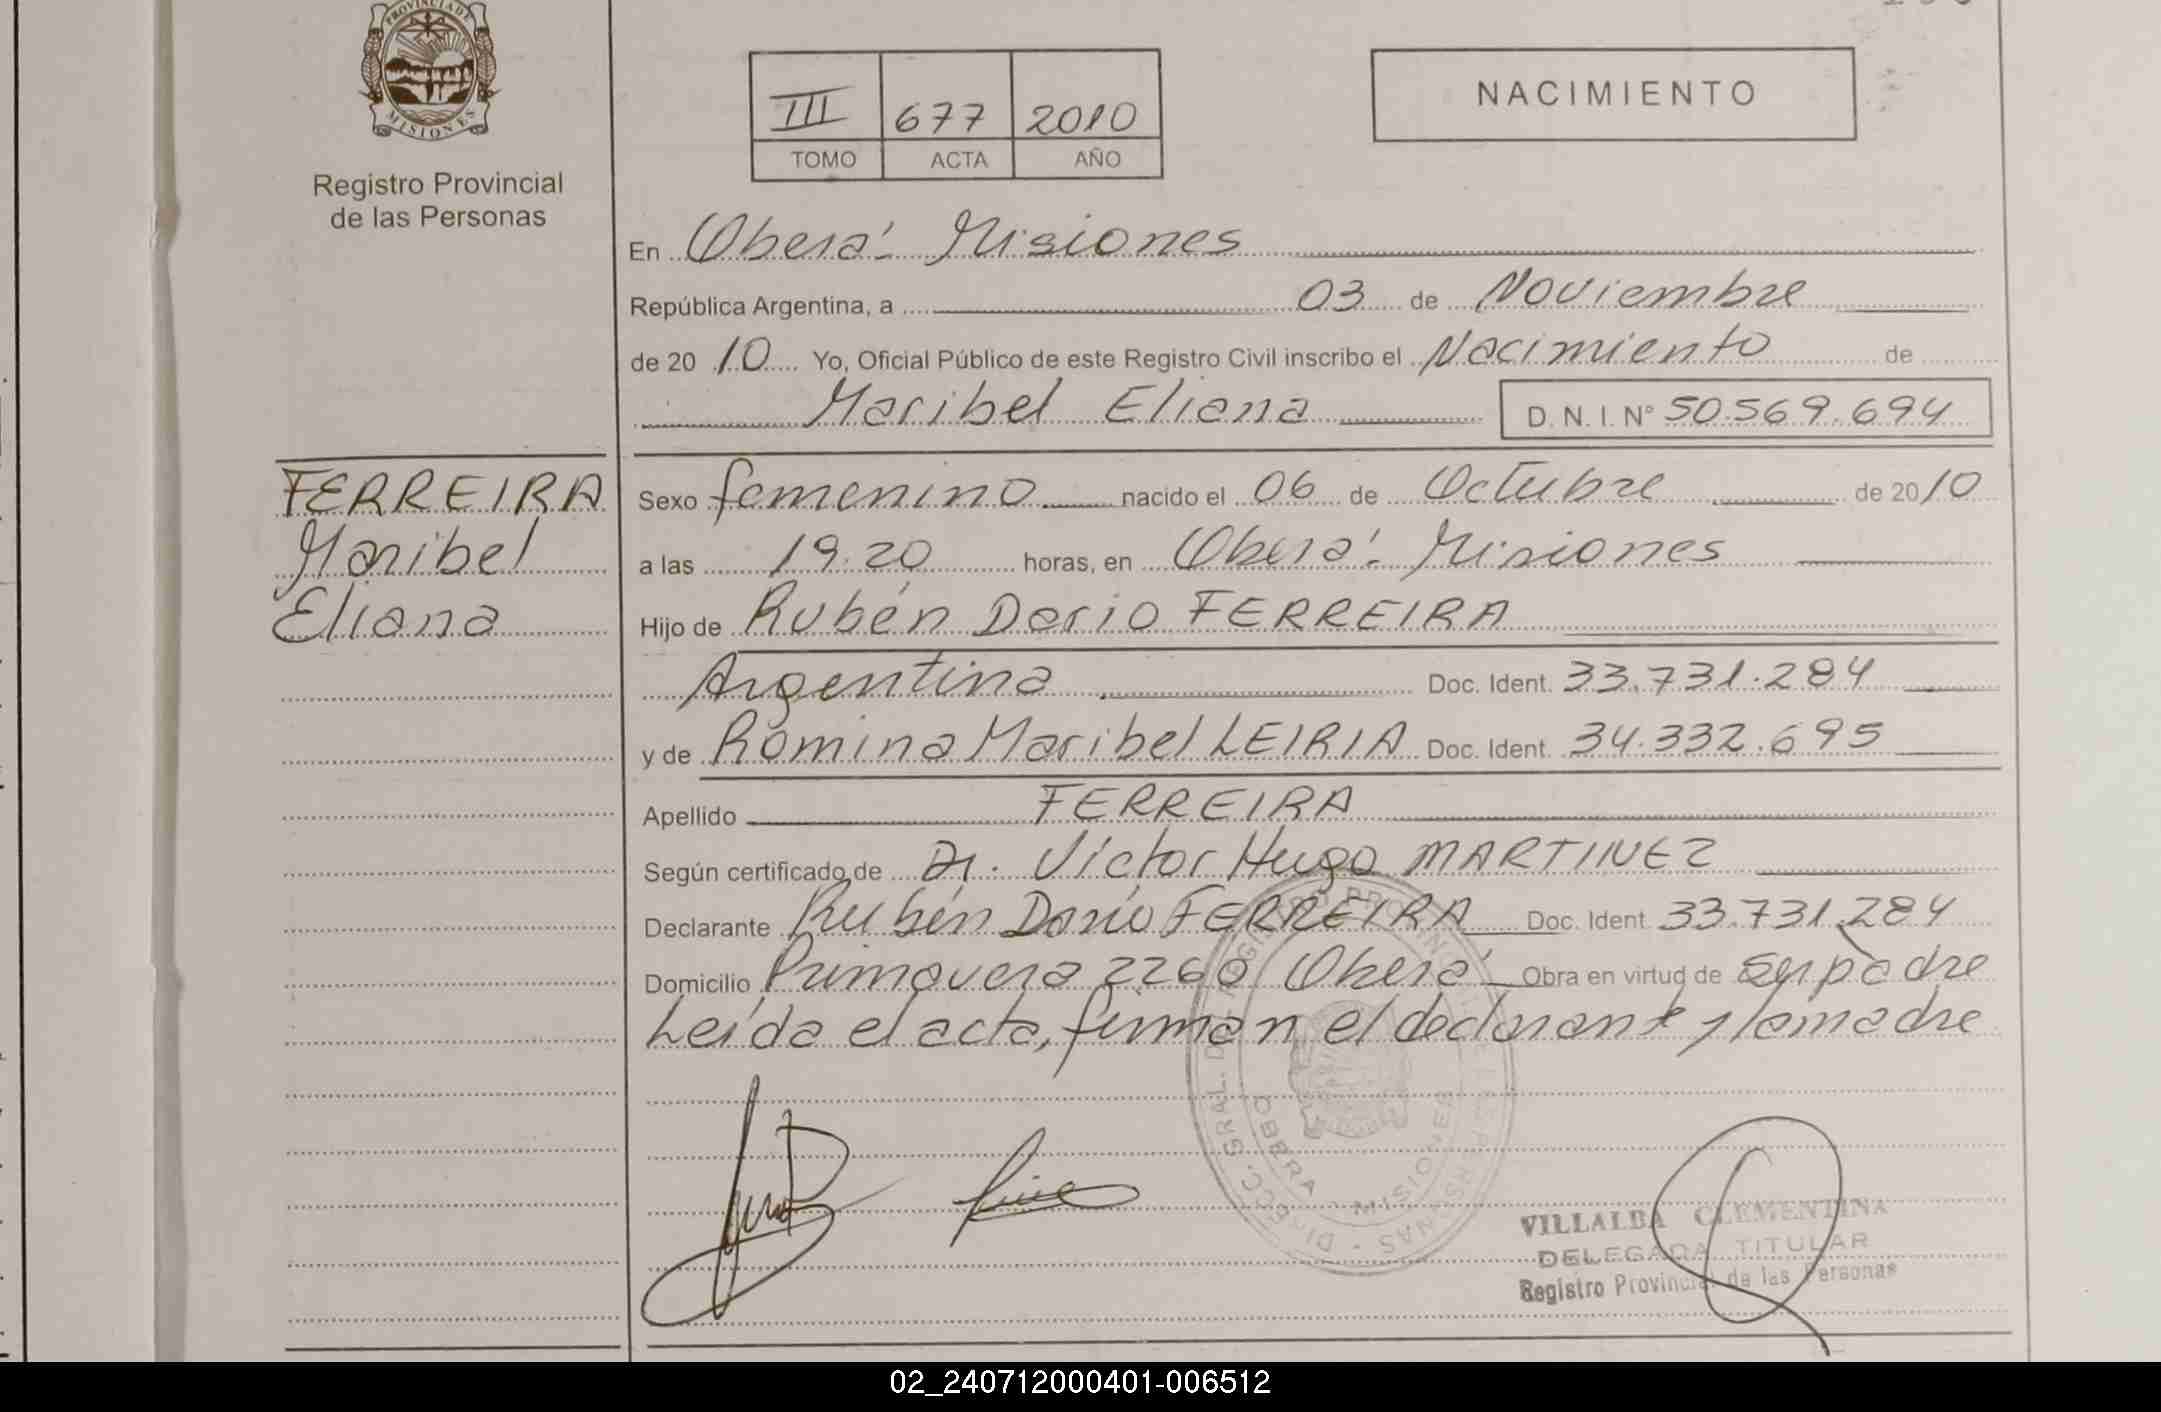 PROVINCIA DE
MISIONES
Registro Provincial
de las Personas
III 677 2010
TOMO ACTA AÑO
NACIMIENTO
En Oberá - Misiones
República Argentina, a 03 de Noviembre
de 2010 Yo, Oficial Público de este Registro Civil inscribo el Nacimiento de
Maribel Eliana D. N. I. Nº 50.569.694
FERREIRA
Maribel
Eliana
Sexo femenino nacido el 06 de Octubre de 2010
a las 19.20 horas, en Oberá - Misiones
Hijo de Rubén Dario FERREIRA
Argentina Doc. Ident. 33.731.284
y de Romina Maribel LEIRIA Doc. Ident. 34.332.695
Apellido FERREIRA
Según certificado de Dr. Víctor Hugo MARTINEZ
Declarante Rubén Darío FERREIRA Doc. Ident. 33.731.284
Domicilio Primavera 2260 Oberá Obra en virtud de Ser padre
Leída el acta, firman el declarante y la madre
DIRECC. GRAL. DEL REGISTRO PROVINCIAL DE LAS PERSONAS
OBERA - MISIONES
VILLALBA CLEMENTINA
DELEGADA TITULAR
Registro Provincial de las Personas
02_240712000401-006512